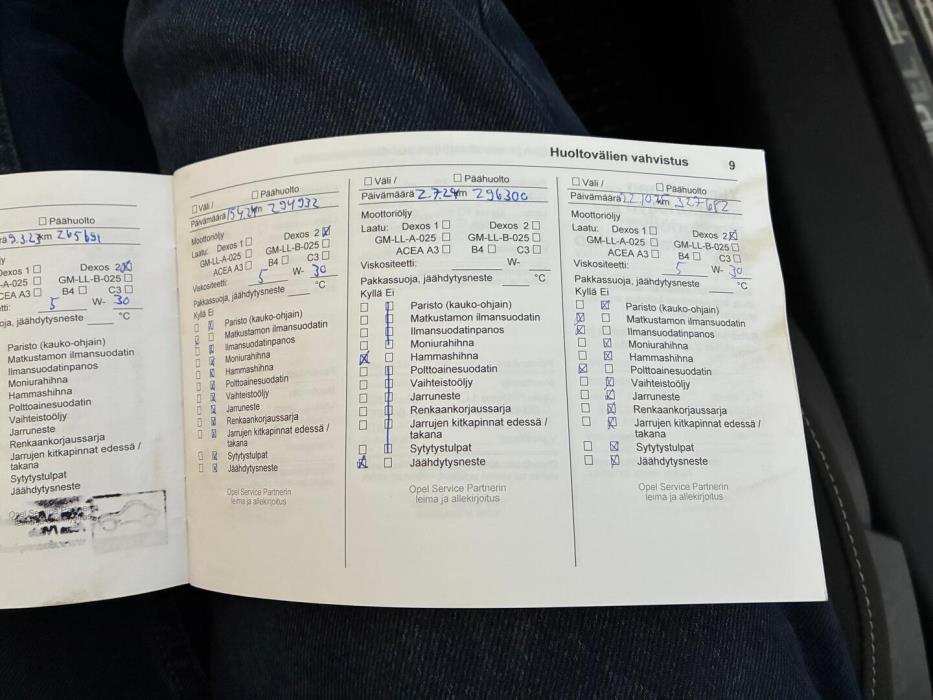 Huoltovälien vahvistus 9
☐ Päähuolto
9.3.23 km 265691
Dexos 1 ☐ Dexos 2 ☒
-A-025 ☐ GM-LL-B-025 ☐
CEA A3 ☐ B4 ☐ C3 ☐
5 W- 30
oja, jäähdytysneste °C
Paristo (kauko-ohjain)
Matkustamon ilmansuodatin
Ilmansuodatinpanos
Moniurahihna
Hammashihna
Polttoainesuodatin
Vaihteistoöljy
Jarruneste
Renkaankorjaussarja
Jarrujen kitkapinnat edessä /
takana
Sytytystulpat
Jäähdytysneste
☐ Väli / ☐ Päähuolto
Päivämäärä 15.4.24 km 294932
Moottoriöljy
Laatu: Dexos 1 ☐ Dexos 2 ☒
GM-LL-A-025 ☐ GM-LL-B-025 ☐
ACEA A3 ☐ B4 ☐ C3 ☐
Viskositeetti: 5 W- 30
Pakkassuoja, jäähdytysneste °C
Kyllä Ei
☐ ☒ Paristo (kauko-ohjain)
Matkustamon ilmansuodatin
☐ ☒ Ilmansuodatinpanos
☐ ☒ Moniurahihna
☐ ☒ Hammashihna
☐ ☒ Polttoainesuodatin
☐ ☒ Vaihteistoöljy
☐ ☒ Jarruneste
☐ ☒ Renkaankorjaussarja
☐ ☒ Jarrujen kitkapinnat edessä /
takana
☐ ☒ Sytytystulpat
☐ ☒ Jäähdytysneste
Opel Service Partnerin
leima ja allekirjoitus
☐ Väli / ☐ Päähuolto
Päivämäärä 2.7.24 km 296300
Moottoriöljy
Laatu: Dexos 1 ☐ Dexos 2 ☐
GM-LL-A-025 ☐ GM-LL-B-025 ☐
ACEA A3 ☐ B4 ☐ C3 ☐
Viskositeetti: W-
Pakkassuoja, jäähdytysneste °C
Kyllä Ei
☐ ☐ Paristo (kauko-ohjain)
☐ ☐ Matkustamon ilmansuodatin
☐ ☐ Ilmansuodatinpanos
☐ ☐ Moniurahihna
☒ ☐ Hammashihna
☐ ☐ Polttoainesuodatin
☐ ☐ Vaihteistoöljy
☐ ☐ Jarruneste
☐ ☐ Renkaankorjaussarja
☐ ☐ Jarrujen kitkapinnat edessä /
takana
☐ ☐ Sytytystulpat
☒ ☐ Jäähdytysneste
Opel Service Partnerin
leima ja allekirjoitus
☐ Väli / ☐ Päähuolto
Päivämäärä km
Moottoriöljy
Laatu: Dexos 1 ☐ Dexos 2 ☒
GM-LL-A-025 ☐ GM-LL-B-025 ☐
ACEA A3 ☐ B4 ☐ C3 ☐
Viskositeetti: 5 W- 30
Pakkassuoja, jäähdytysneste °C
Kyllä Ei
☐ ☒ Paristo (kauko-ohjain)
☒ ☐ Matkustamon ilmansuodatin
☒ ☐ Ilmansuodatinpanos
☐ ☒ Moniurahihna
☐ ☒ Hammashihna
☒ ☐ Polttoainesuodatin
☐ ☒ Vaihteistoöljy
☐ ☒ Jarruneste
☐ ☒ Renkaankorjaussarja
☐ ☒ Jarrujen kitkapinnat edessä /
takana
☐ ☒ Sytytystulpat
☐ ☒ Jäähdytysneste
Opel Service Partnerin
leima ja allekirjoitus